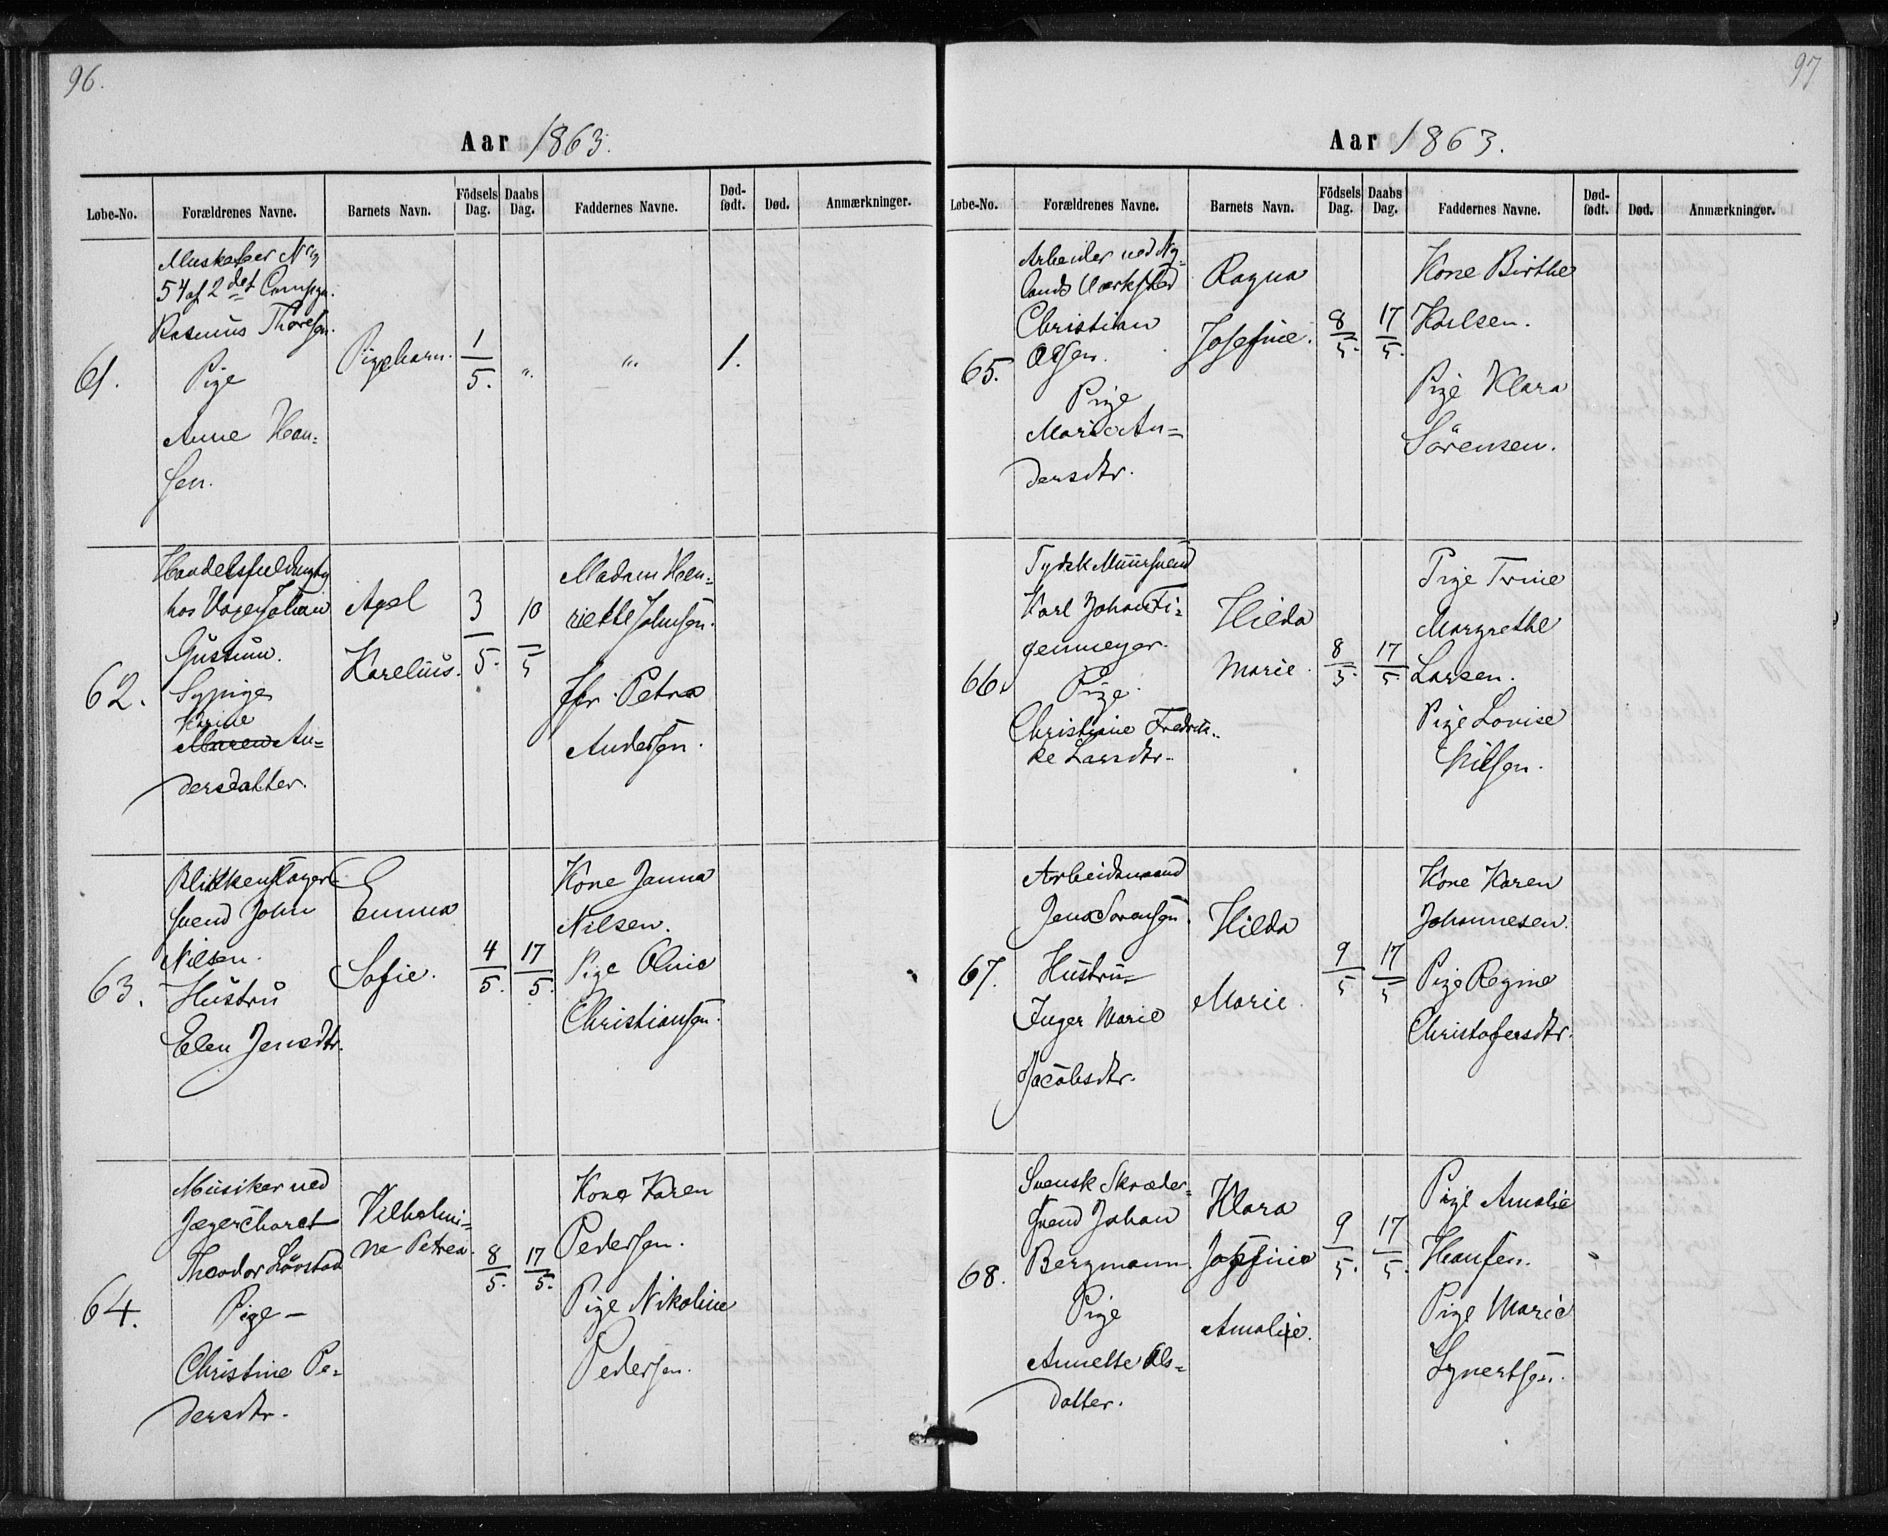 96.
Aar 1863.
Løbe-No. Forældrenes Navne. Barnets Navn. Födsels Dag. Daabs Dag. Faddernes Navne. Død-födt. Død. Anmærkninger.
61.
Musketeer No
54 af 2det Compgn.
Rasmus Thoresen.
Pige
Anne Han-
sen.
Pigebarn.
1/5.
".
".
1.
62.
hos Johan
Gustum.
Sypige
Karine
Maren An-
dersdatter.
Axel
Karelius.
3/5.
10/5
Madam Hen-
riette Johnsen.
Jfr. Petra
Andersen.
63.
Blikkenslager-
svend John
Nilsen.
Hustru
Elen Jensdtr.
Emma
Sofie.
4/5.
17/5.
Kone Janna
Nilsen.
Pige Olnie
Christiansen.
64.
Musiker ved
Jægerchoret
Theodor Lövstad
Pige –
Christine Pe-
dersdtr.
Vilhelmi-
ne Petrea.
8/5.
17/5.
Kone Karen
Pedersen.
Pige Nikoline
Pedersen.
97
Aar 1863.
Løbe-No. Forældrenes Navne. Barnets Navn. Födsels Dag. Daabs Dag. Faddernes Navne. Død-födt. Død. Anmærkninger.
65.
Arbeider ved Ny-
lands Værksted
Christian
Olsen.
Pige
Marie An-
dersdtr.
Ragna
Josefine.
8/5.
17/5.
Kone Birthe
Karlsen.
Pige Klara
Sörensen.
66.
Tydsk Muursvend
Karl Johan Fi-
genmeyer.
Pige.
Christine Fredrik-
ke Larsdtr.
Hilda
Marie.
8/5.
17/5
Pige Trine
Margrethe
Larsen.
Pige Lovise
Nilsen.
67.
Arbeidsmand
Jens Sörensen.
Hustru
Inger Marie
Jacobsdtr.
Hilda
Marie.
9/5
17/5
Kone Karen
Johannesen.
Pige Regine
Christofersdtr.
68.
Svensk Skræder-
svend Johan
Bergmann.
Pige
Annette Ols-
datter.
Klara
Josefine
Amalie.
9/5.
17/5.
Pige Amalie
Hansen.
Pige Marie
Synertsen.